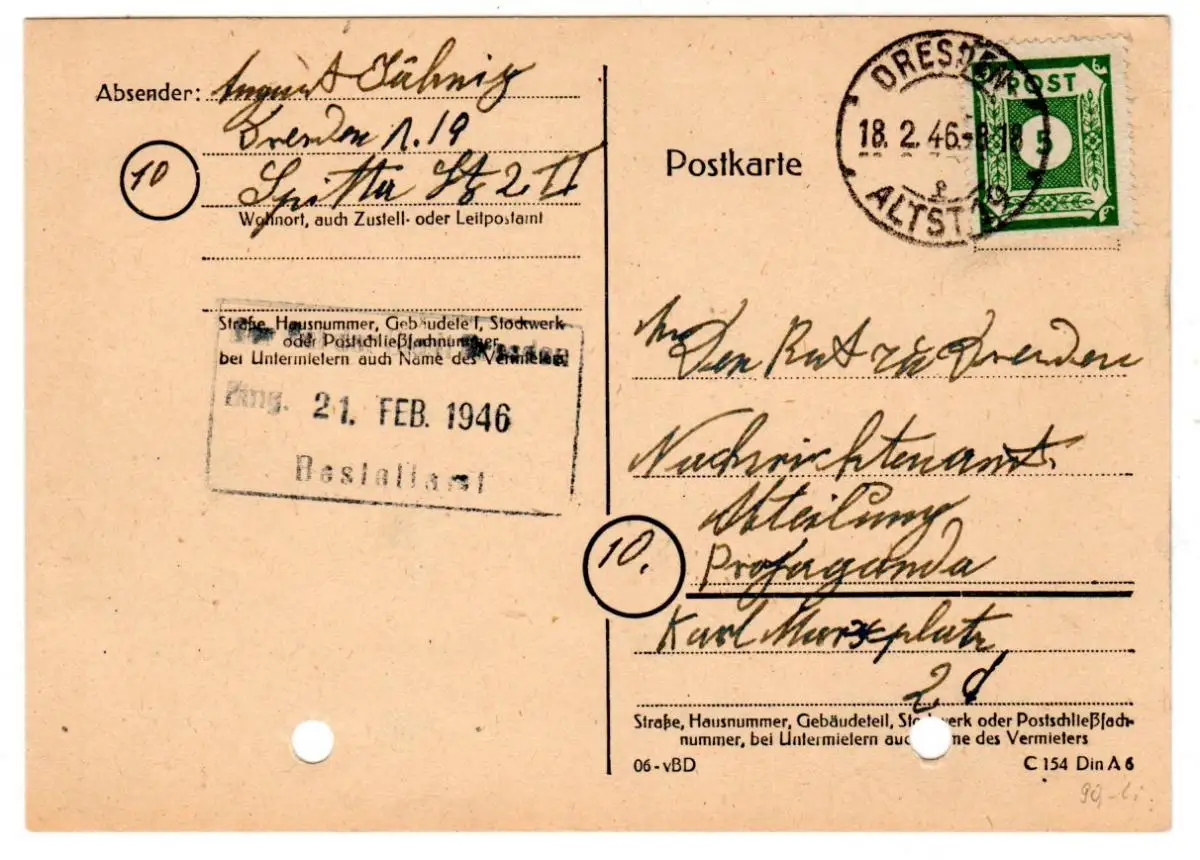 Absender: August Jähnig
Dresden A. 19
10
Spitta Str 2 II
Wohnort, auch Zustell- oder Leitpostamt
Straße, Hausnummer, Gebäudeteil, Stockwerk
oder Postschließfachnummer,
bei Untermietern auch Name des Vermieters
Dresden
Eing. 21. FEB. 1946
Bestellamt
Postkarte
DRESDEN
18. 2. 46.-8 18
ALTST. 19
POST
5
An
Den Rat zu Dresden
Nachrichtenamt
Abteilung
10.
Propaganda
Karl Marxplatz
2 d
Straße, Hausnummer, Gebäudeteil, Stockwerk oder Postschließfach-
nummer, bei Untermietern auch Name des Vermieters
06-vBD
C 154 Din A 6